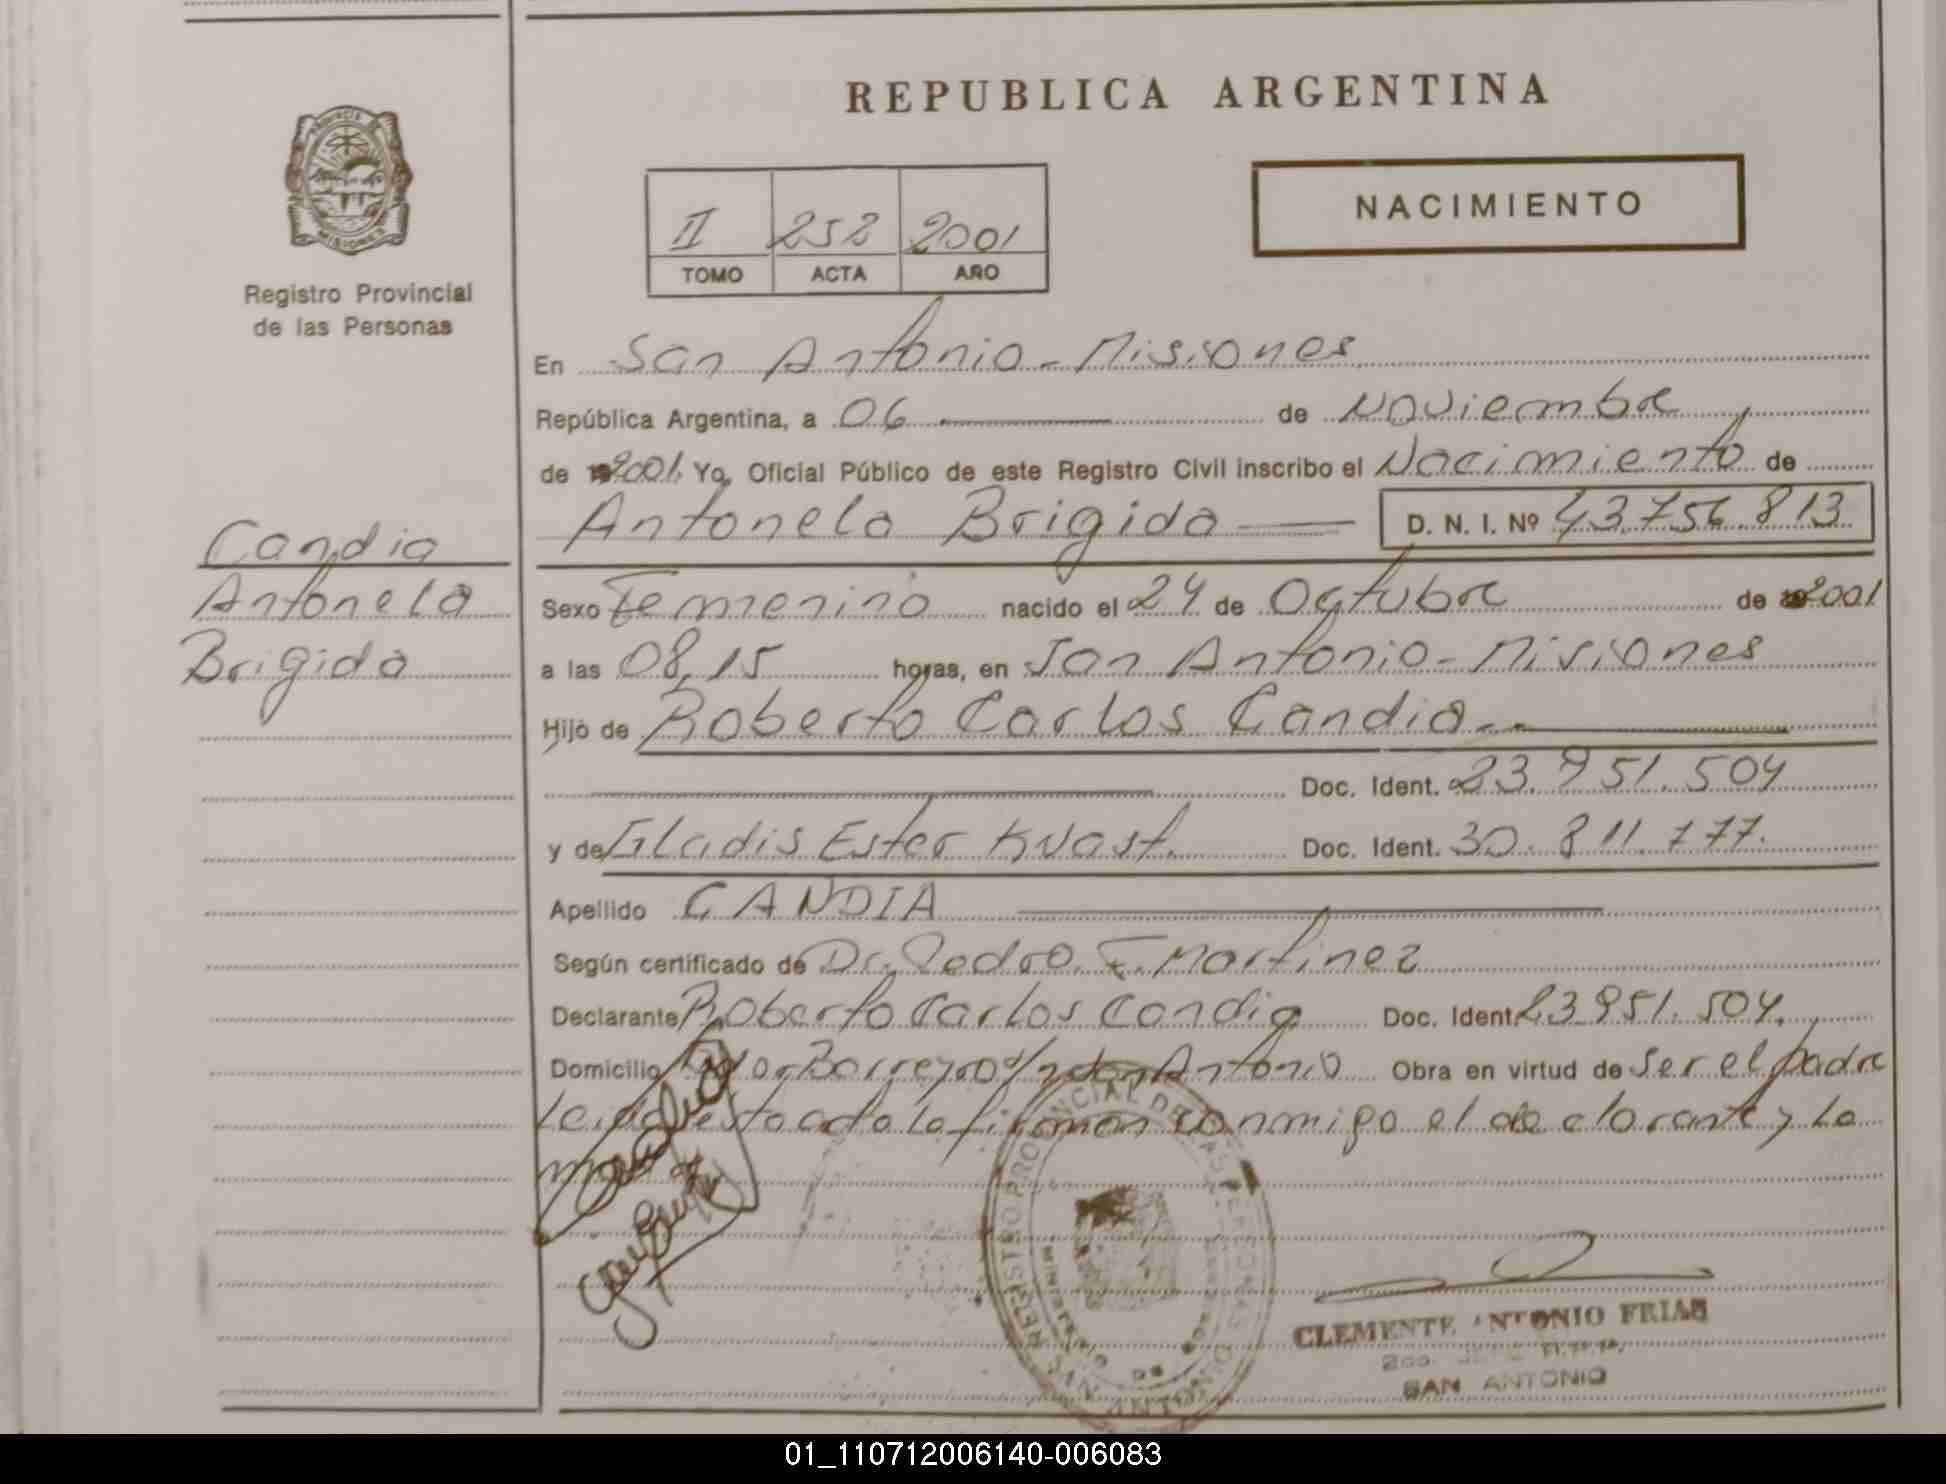 REPUBLICA ARGENTINA
PROVINCIA DE
MISIONES
Registro Provincial
de las Personas
II 252 2001
TOMO ACTA AÑO
NACIMIENTO
En San Antonio - Misiones
República Argentina, a 06 de Noviembre
de 2001. Yo, Oficial Público de este Registro Civil inscribo el Nacimiento de
Antonela Brigida D. N. I. Nº 43.756.813
Candia
Antonela
Brigida
Sexo Femenino nacido el 24 de Octubre de 2001
a las 08,15 horas, en San Antonio - Misiones
Hijo de Roberto Carlos Candia
Doc. Ident. 23.951.504
y de Gladis Ester Kuast. Doc. Ident. 30.811.177.
Apellido CANDIA
Según certificado de Dr. Pedro. F. Martinez
Declarante Roberto Carlos Candia Doc. Ident. 23.951.504.
Domicilio Antonio Obra en virtud de ser el padre
Leida esta acta la firman conmigo el declarante y La
madre
REGISTRO PROVINCIAL DE LAS PERSONAS
MINISTERIO DE GOBIERNO
SAN ANTONIO
CLEMENTE ANTONIO FRIAS
SAN ANTONIO
01_110712006140-006083